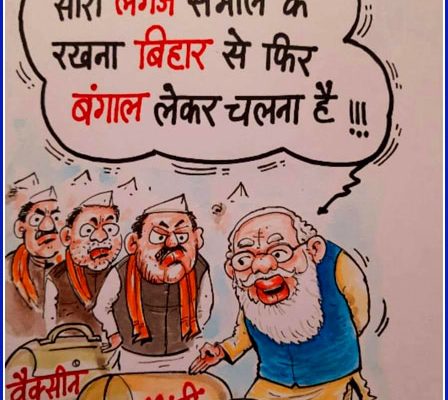 सारा लगेज संभाल के
रखना बिहार से फिर
बंगाल लेकर चलना है !!!
वैक्सीन